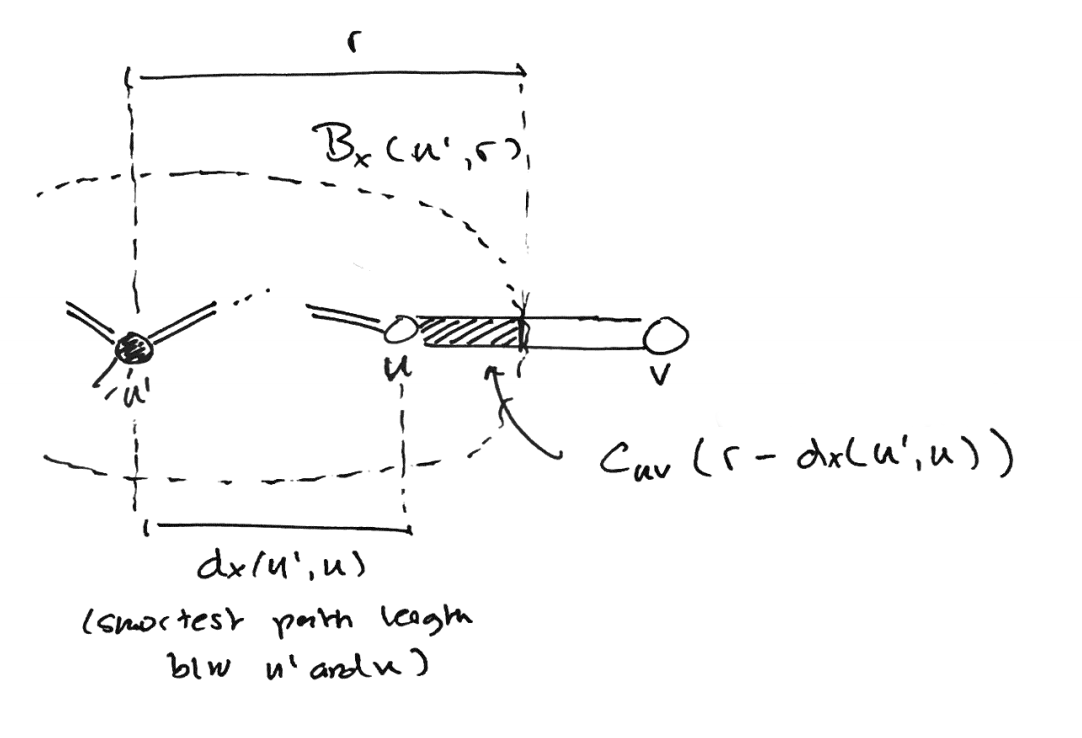 r
Bx (u', r)
u'
u
v
Cuv (r - dx(u', u))
dx(u', u)
(shortest path length
b/w u' and u)